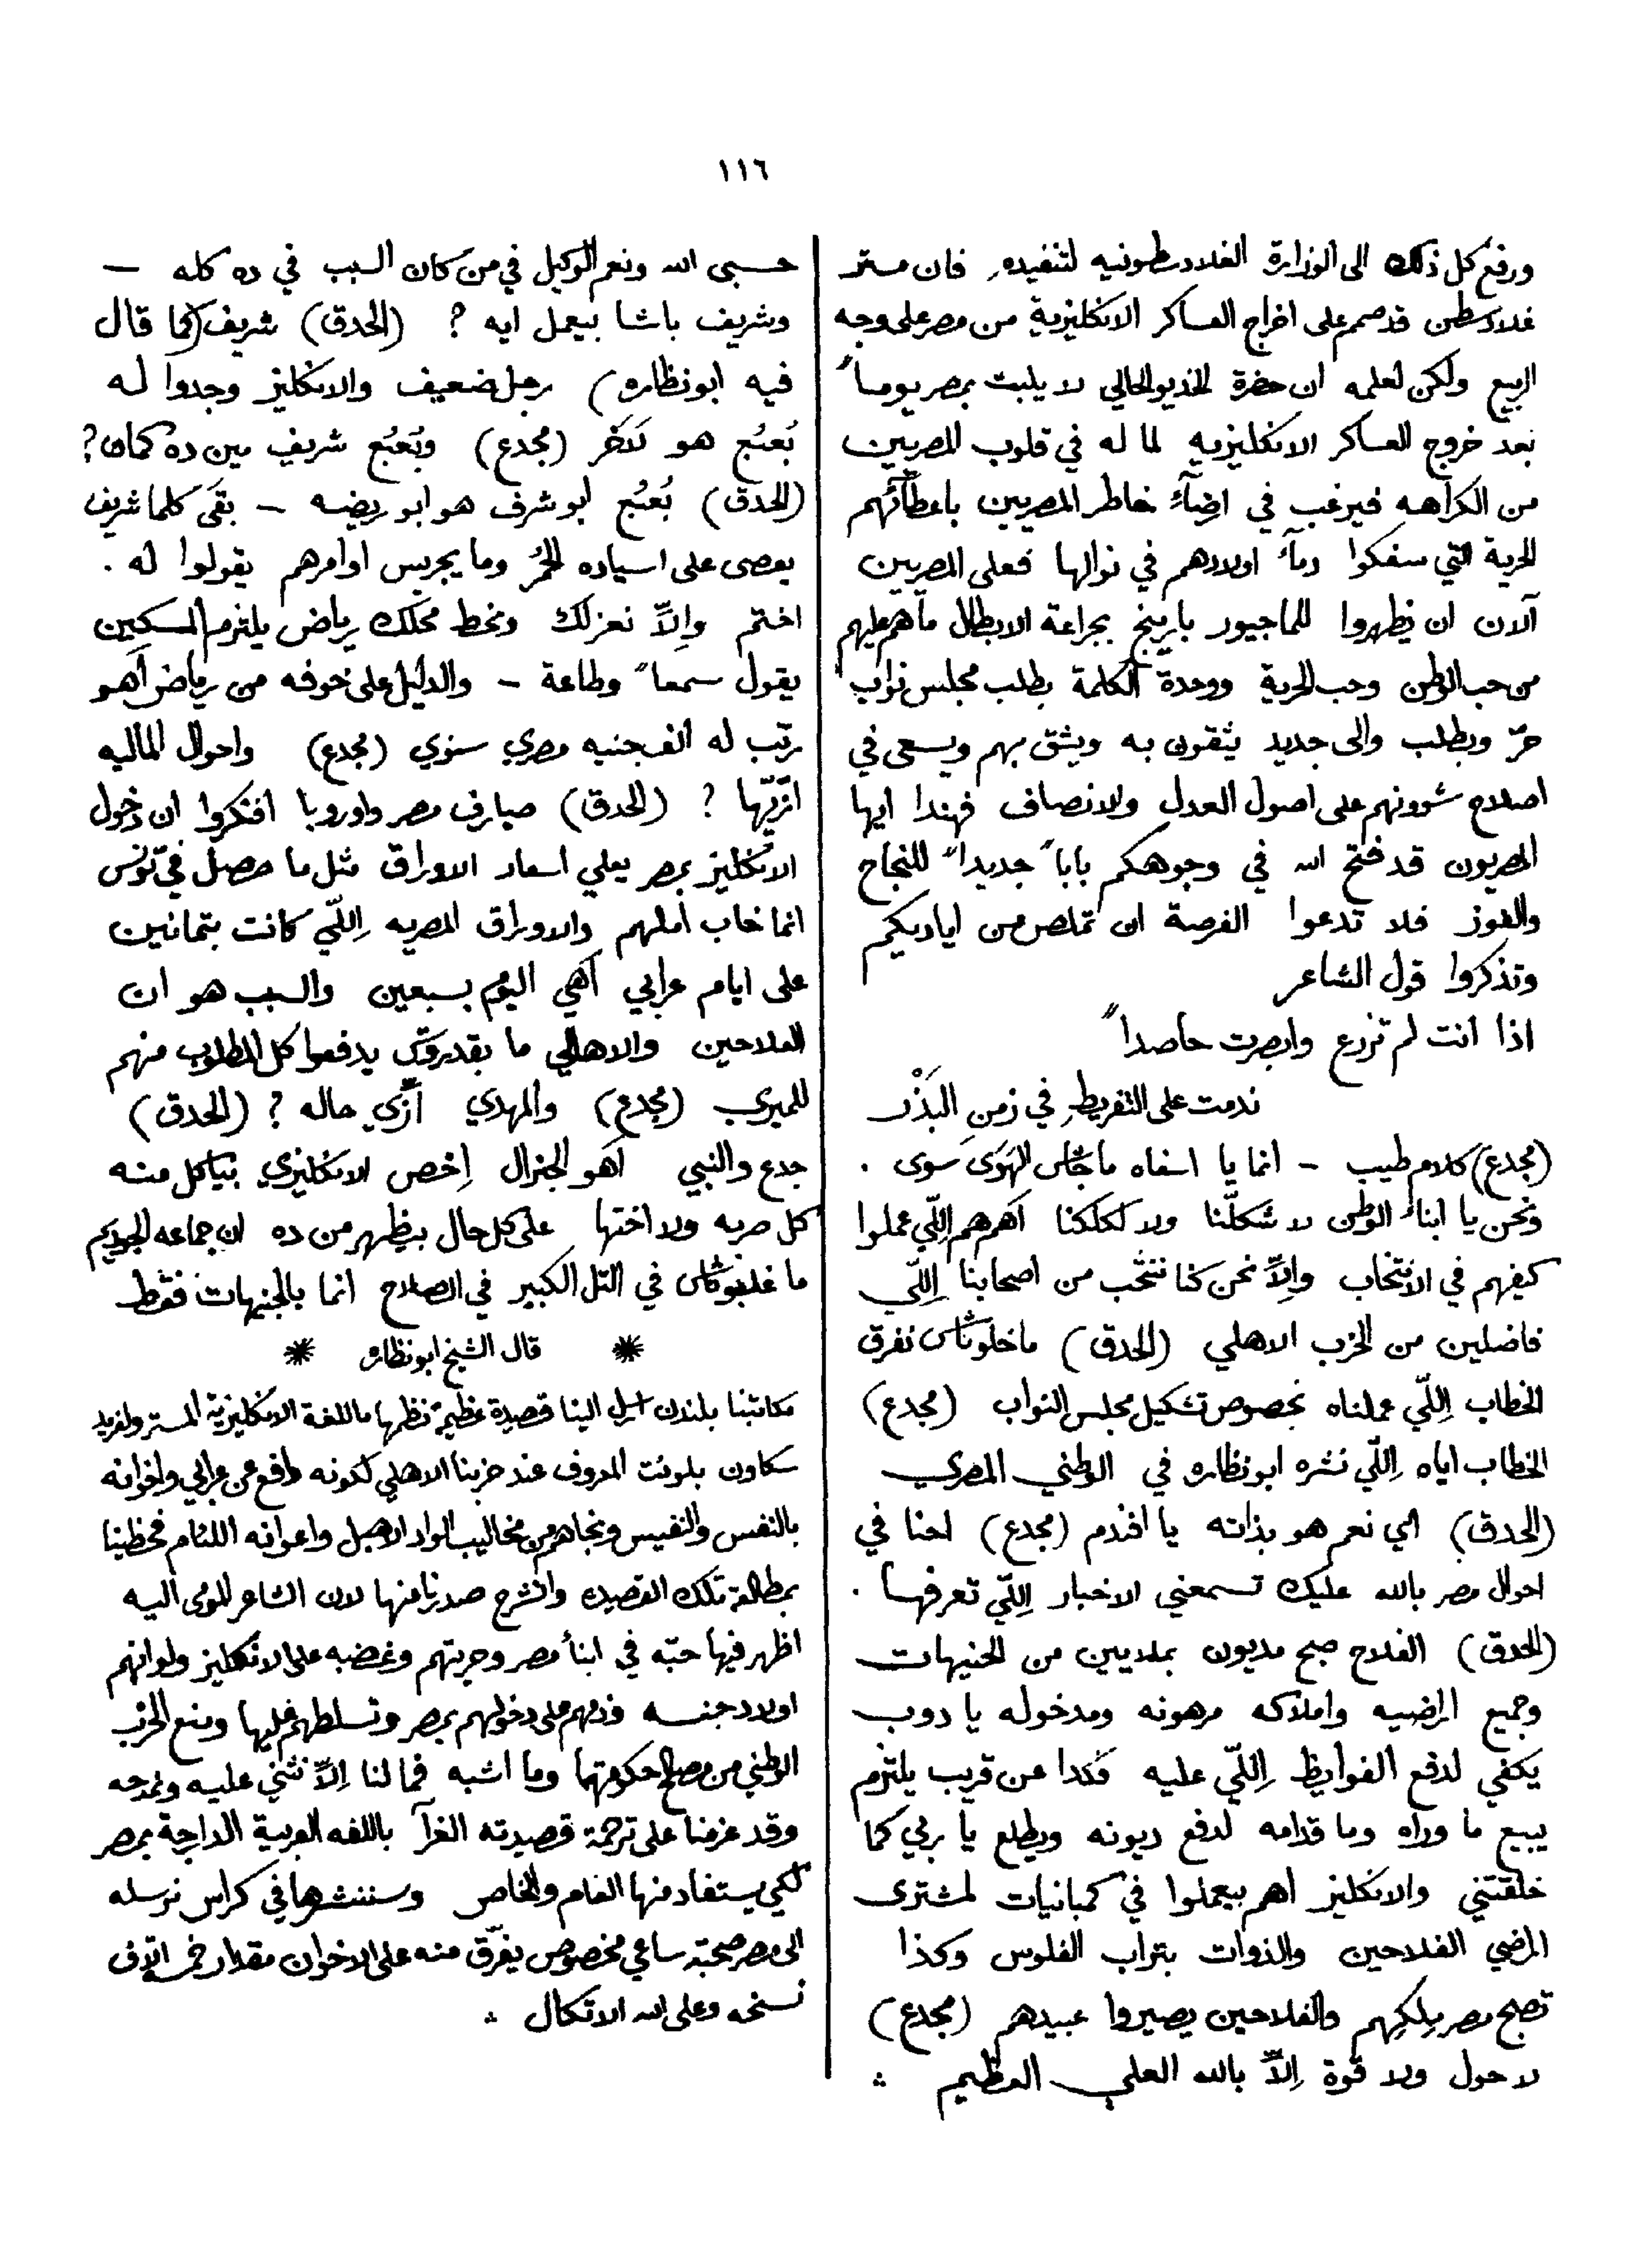 ١١٦
ورفع كل ذلك الى الوزارة الغلادسطونيه لتنفيذه فان مستر
غلادسطن قد صمم على اخراج العساكر الانكليزية من مصر على وجه
الربيع ولكن لعلمه ان حضرة الخديو الحالي لا يلبث بمصر يوماً
بعد خروج العساكر الانكليزيه لما له في قلوب المصريين
من الكراهه فيرغب في ارضآء خاطر المصريين باعطآئهم
الحرية التي سفكوا دمآء اولادهم في نوالها فعلى المصريين
آلان ان يظهروا للماجيور بارينج بجراعة الابطال ما هم عليهم
من حب الوطن وحب الحرية ووحدة الكلمة بطلب مجلس نواب
حرّ وبطلب والى جديد يثقون به ويثق بهم ويسعى في
اصلاح شوونهم على اصول العدل والانصاف فهذا ايها
المصريون قد فتح الله في وجوهكم باباً جديداً للنجاح
والفوز فلا تدعوا الفرصة ان تملص من اياديكم
وتذكروا قول الشاعر
اذا انت لم تزرع وابصرت حاصداً
ندمت على التفريط في زمن البَذْر
(مجدع) كلام طيب – انما يا اسفاه ما جاش الهَوَى سَوى .
ونحن يا ابناء الوطن لا شكلّنا ولا لكلكنا اَهم هم اِللّي عملوا
كيفهم في الانتخاب واِلاّ نحن كنا ننتخب من اصحابنا اِللّي
فاضلين من الحزب الاهلي (الحدق) ما خلوناش نفرق
الخطاب اِللّي عملناه بخصوص تشكيل مجلس النواب (مجدع)
الخطاب اياه اِللّي نشره ابو نظاره في الوطني المصري
(الحدق) اي نعم هو بذاته يا افندم (مجدع) احنا في
احوال مصر بالله عليك تسمعني الاخبار اِللّي تعرفها .
(الحدق) الفلاح صبح مديون بملايين من الجنيهات
وجميع اراضيه واملاكه مرهونه ومدخوله يا دوب
يكفي لدفع الفوايظ اِللّي عليه فكدا عن قريب يلتزم
يبيع ما وراه وما قدامه لدفع ديونه ويطلع يا ربي كما
خلقتني والانكليز اهم بيعملوا في كمبانيات لمشترى
اراضي الفلاحين والذوات بتراب الفلوس وكذا
تصبح مصر مِلكهم والفلاحين يصيروا عبيدهم (مجدع)
لا حول ولا قوة اِلاّ بالله العلي العظيم
حسبى الله ونعم الوكيل في من كان السبب في ده كله –
وشريف باشا بيعمل ايه ? (الحدق) شريف (كما قال
فيه ابو نظاره) رجل ضعيف والانكليز وجدوا له
بُعبُع هو لاَخر (مجدع) وبُعبُع شريف مين ده كمان ?
(الحدق) بُعبُع ابو شرف هو ابو ريضه – بقى كلما شريف
يعصى على اسياده الحُمُر وما يجريس اوامرهم يقولوا له .
اختم واِلاّ نعزلك ونحط محلك رياض يلتزم المسكين
يقول سمعاً وطاعة – والدليل على خوفه من رياض اَهو
رتّب له الف جنيه مصري سنوي (مجدع) واحوال الماليه
ازّيّها ? (الحدق) صيارف مصر واوروبا افتكروا ان دخول
الانكليز بمصر يعلي اسعار الاوراق مثل ما حصل في تونس
انما خاب املهم والاوراق المصريه اِللّي كانت بتمانين
على ايام عرابي اَهي اليوم بسبعين والسبب هو ان
الفلاحين والاهالي ما بقدروش يدفعوا كل المطلوب منهم
للميرى (مجدع) والمهدي اَزّي حاله ? (الحدق)
جدع والنبي اَهو الجنرال اِخص الانكليزي بياكل منه
كل ضربه ولا اختها على كل حال بيظهر من ده ان جماعه الجوديم
ما غلبوناش في التل الكبير في السلاح انما بالجنيهات فقط
* قال الشيخ ابو نظاره *
مكاتبنا بلندن ارسل الينا قصيدة عظيمة نظمها باللغة الانكليزية المستر ولفريد
سكاون بلونت المعروف عند حزبنا الاهلي لكونه دافع عن عرابي واخوانه
بالنفس والنفيس ونجاهم من مخاليب الواد الاهبل واعوانه اللئام فحظينا
بمطالعة تلك القصيده وانشرح صدرنا منها لان الشاعر المومى اليه
اظهر فيها حبّه في ابنآء مصر وحريتهم وغضبه على الانكليز ولو انهم
اولاد جنسه وذمهم على دخولهم بمصر وتسلطهم عليها ومنع الحزب
الوطني من اصلاح حكومتها وما اشبه فما لنا اِلاّ نثني عليه ونمدحه
وقد عزمنا على ترجمة قصيدته الغرآ باللغه العربية الدارجة بمصر
لكي يستفاد منها العام والخاص وسننشرها في كراس نرسله
الى مصر صحبة ساعي مخصوص يفرّق منه على الاخوان مقدار خمسة الاف
نسخه وعلى الله الاتكال